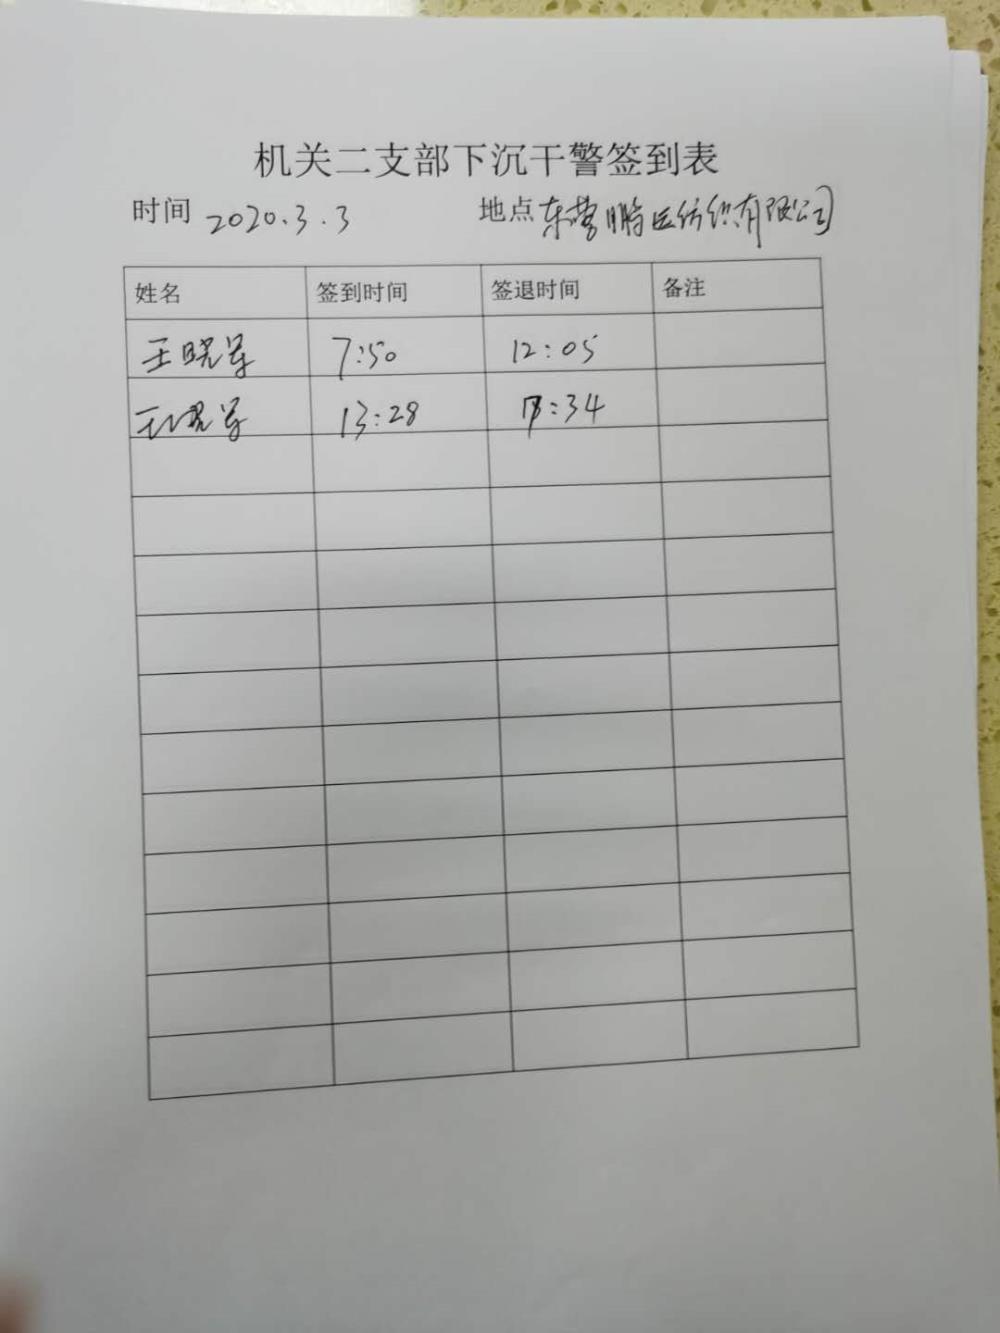 机关二支部下沉干警签到表
时间 2020.3.3 地点 东营鹏达纺织有限公司
姓名 签到时间 签退时间 备注
王晓军 7:50 12:05
王晓军 13:28 :34